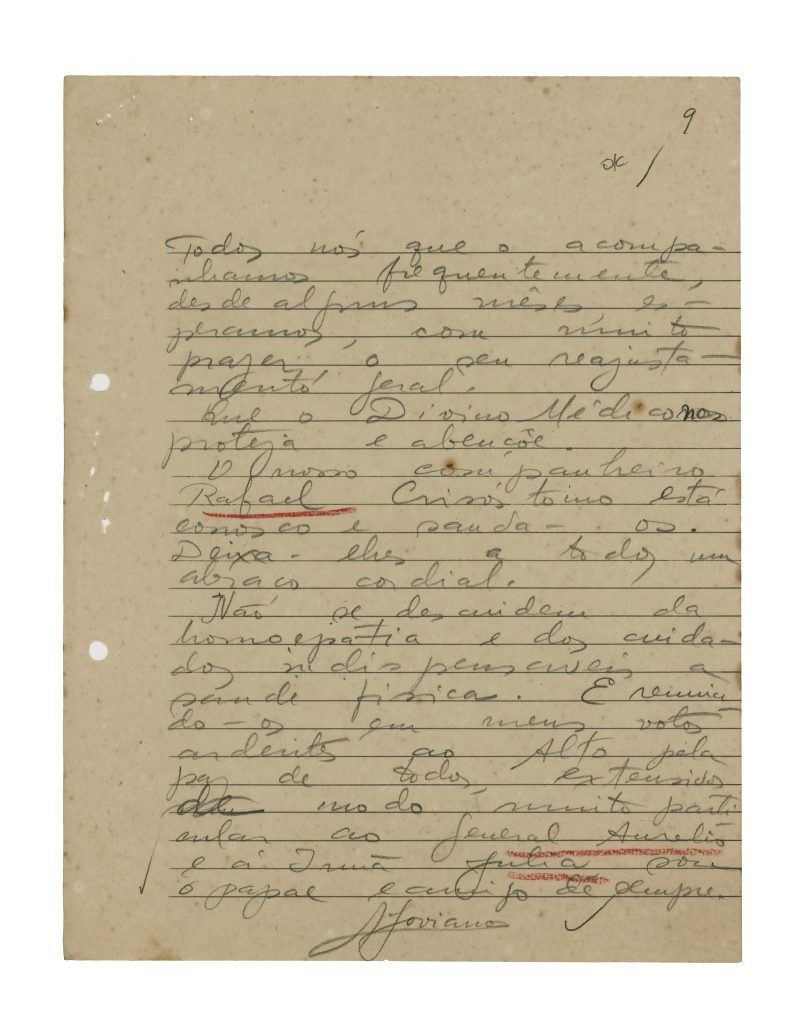 9
* /
Todos nós que o acompa-
nhamos frequentemente,
desde alguns mêses, es-
peramos, com muito
prazer, o seu reajusta-
mento geral.
Que o Divino Médico nos
proteja e abençôe.
O nosso companheiro
Rafael Crisóstomo está
conosco e sauda-os.
Deixa-lhes a todos um
abraço cordial.
Não se descuidem da
homoepatia e dos cuida-
dos indispensáveis a
saude fisica. E reunin-
do-os em meus votos
ardentes ao Alto pela
paz de todos, extensivos
de modo muito parti
cular ao General Aurelio
e á Irmã Julia sou
o papae e amigo de sempre.
AJoviano